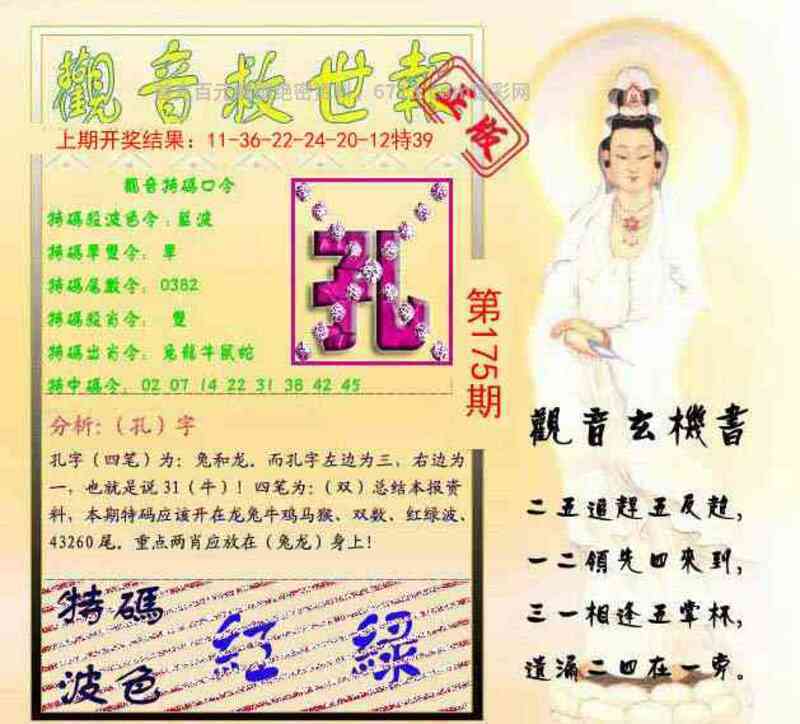 觀音救世報
百元
彩网
正版
上期开奖结果：11-36-22-24-20-12特39
觀音特碼口令
特碼段波色令：藍波
特碼單雙令：單
特碼尾數令：0382
特碼段肖令： 雙
特碼出肖令：兔龍牛鼠蛇
特中碼令：02 07 14 22 31 38 42 45
孔
第175期
分析：（孔）字
孔字（四笔）为：兔和龙．而孔字左边为三，右边为
一，也就是说31（牛）！四笔为：（双）总结本报资
料，本期特码应该开在龙兔牛鸡马猴、双数、红绿波、
43260尾．重点两肖应放在（兔龙）身上！
特碼
波色
紅 綠
觀音玄機書
二五追趕五反超，
一二領先四來到，
三一相逢五掌杯，
遺漏二四在一旁。